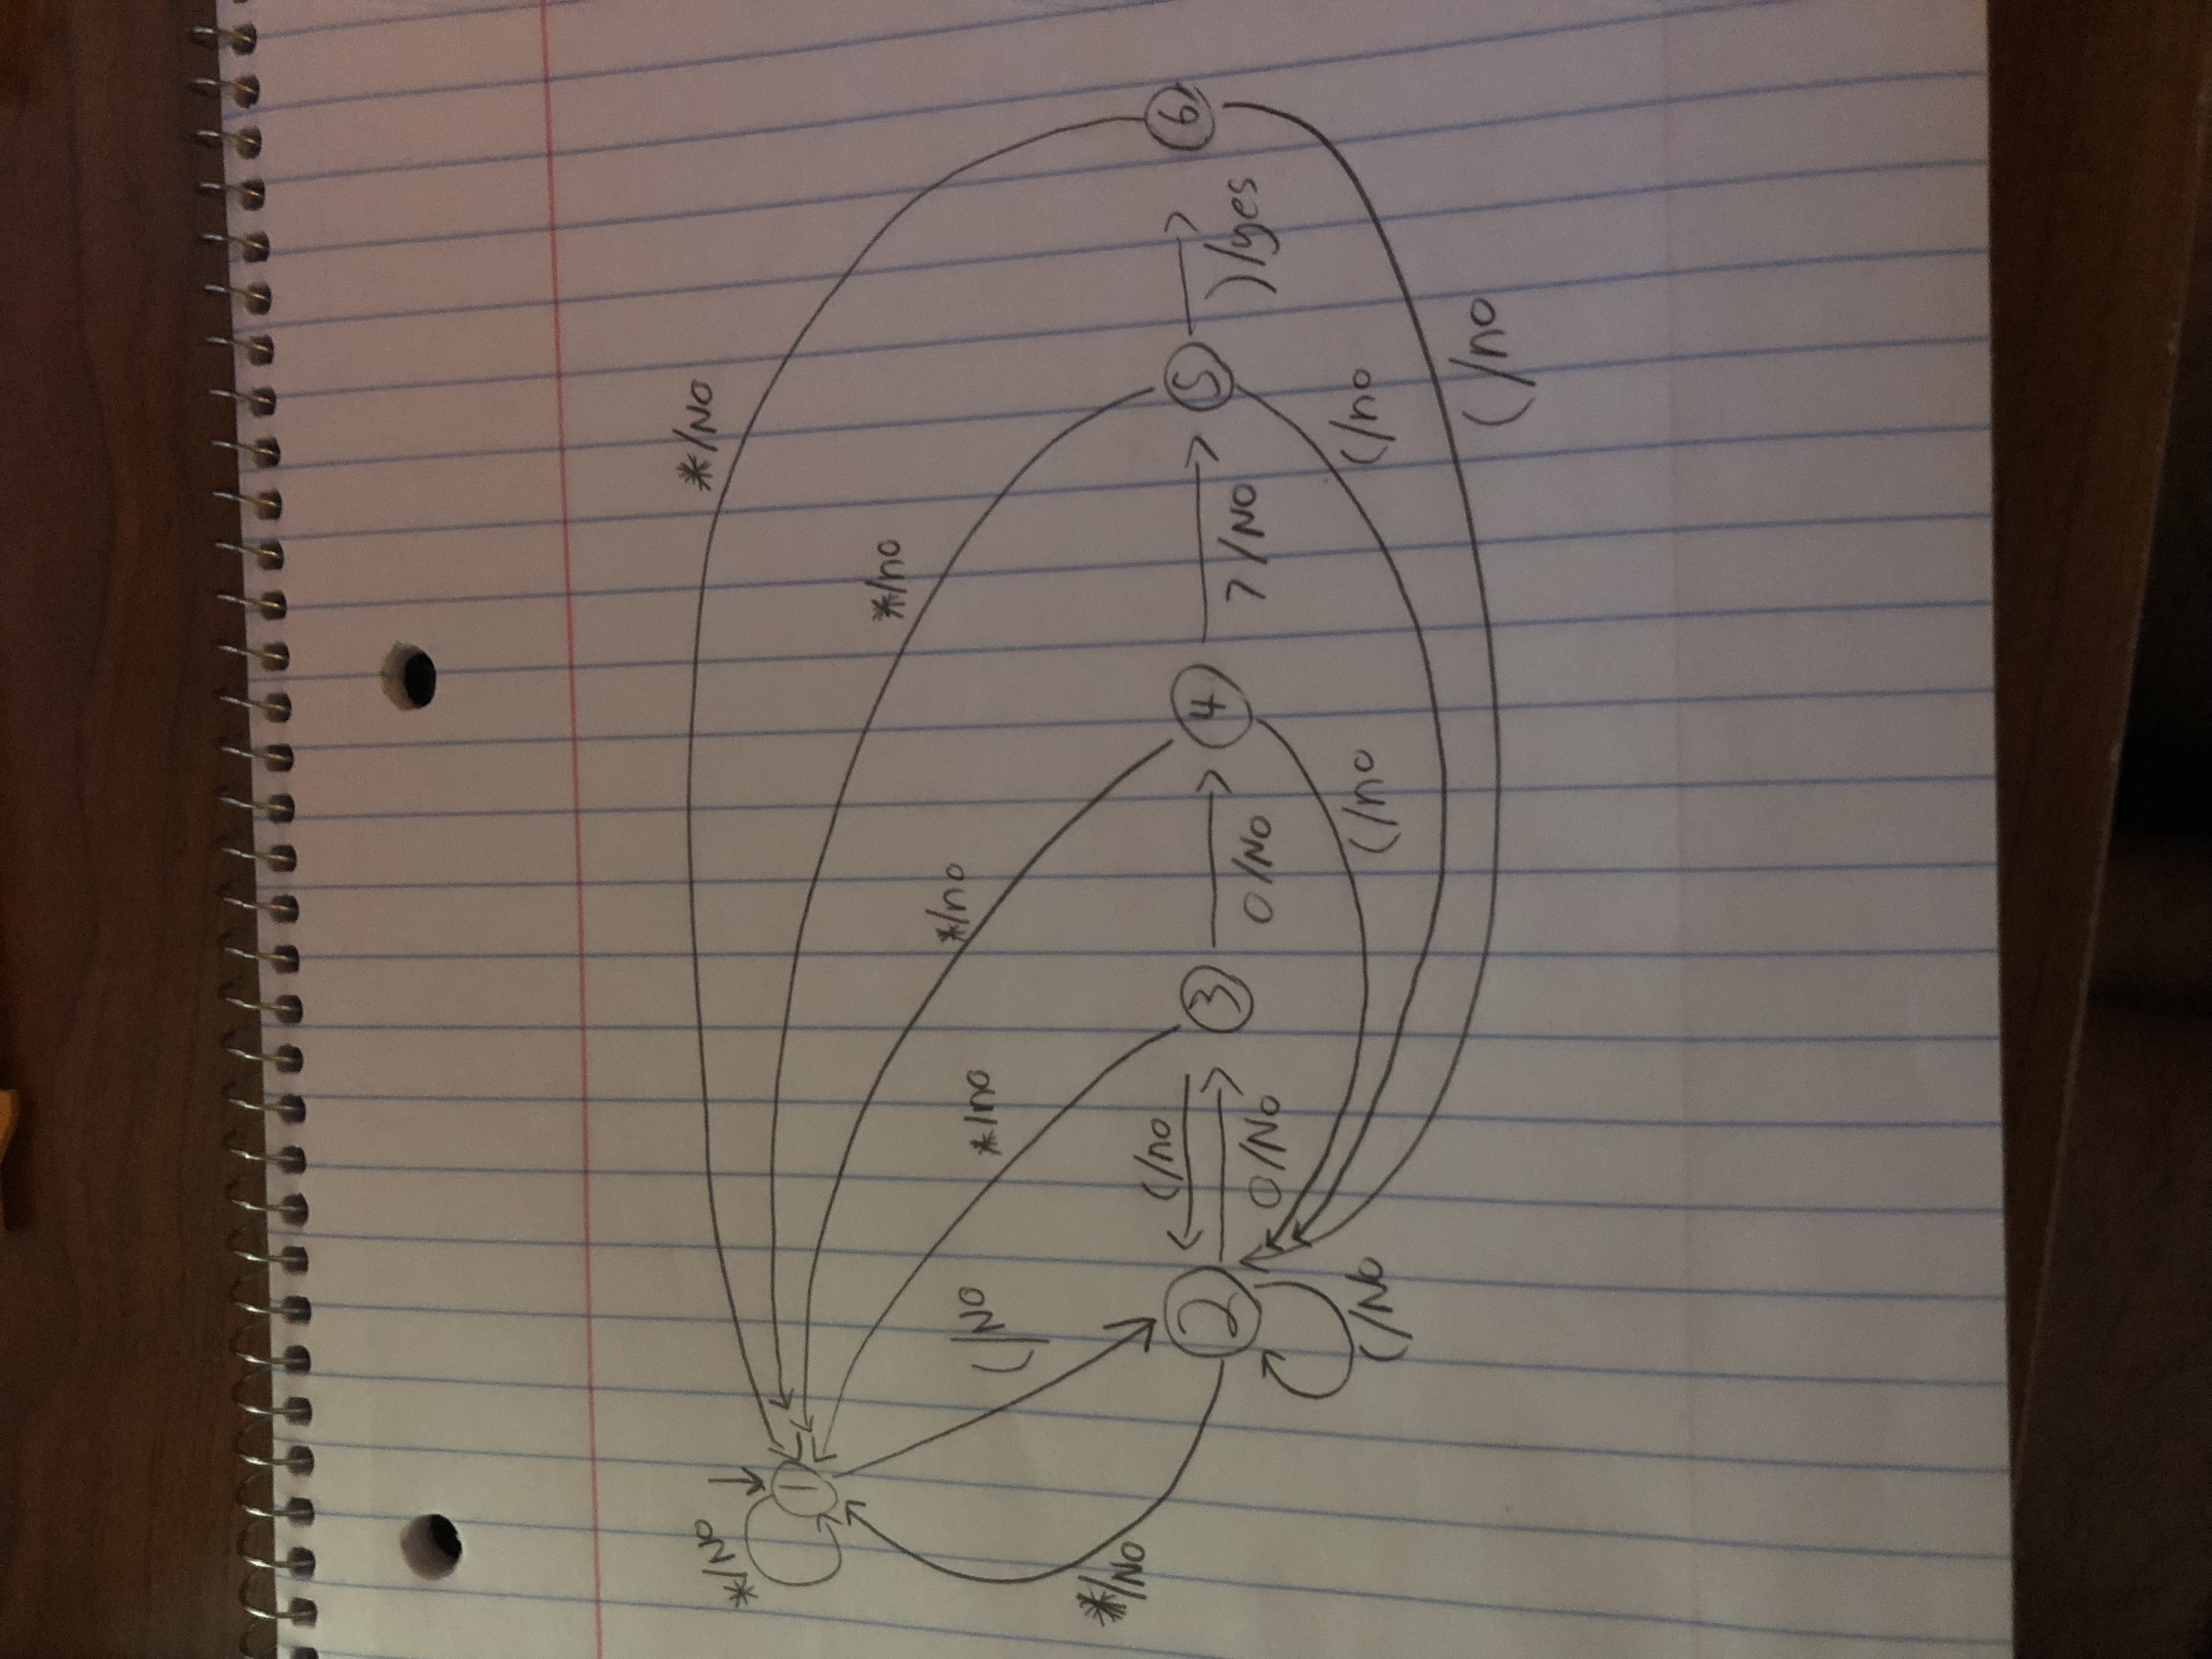 */No
*/No
1
*/no
*/no
(/No
*/no
*/No
(/no
2
3
4
5
6
0/No
0/No
7/No
)/yes
(/No
(/no
(/no
(/no